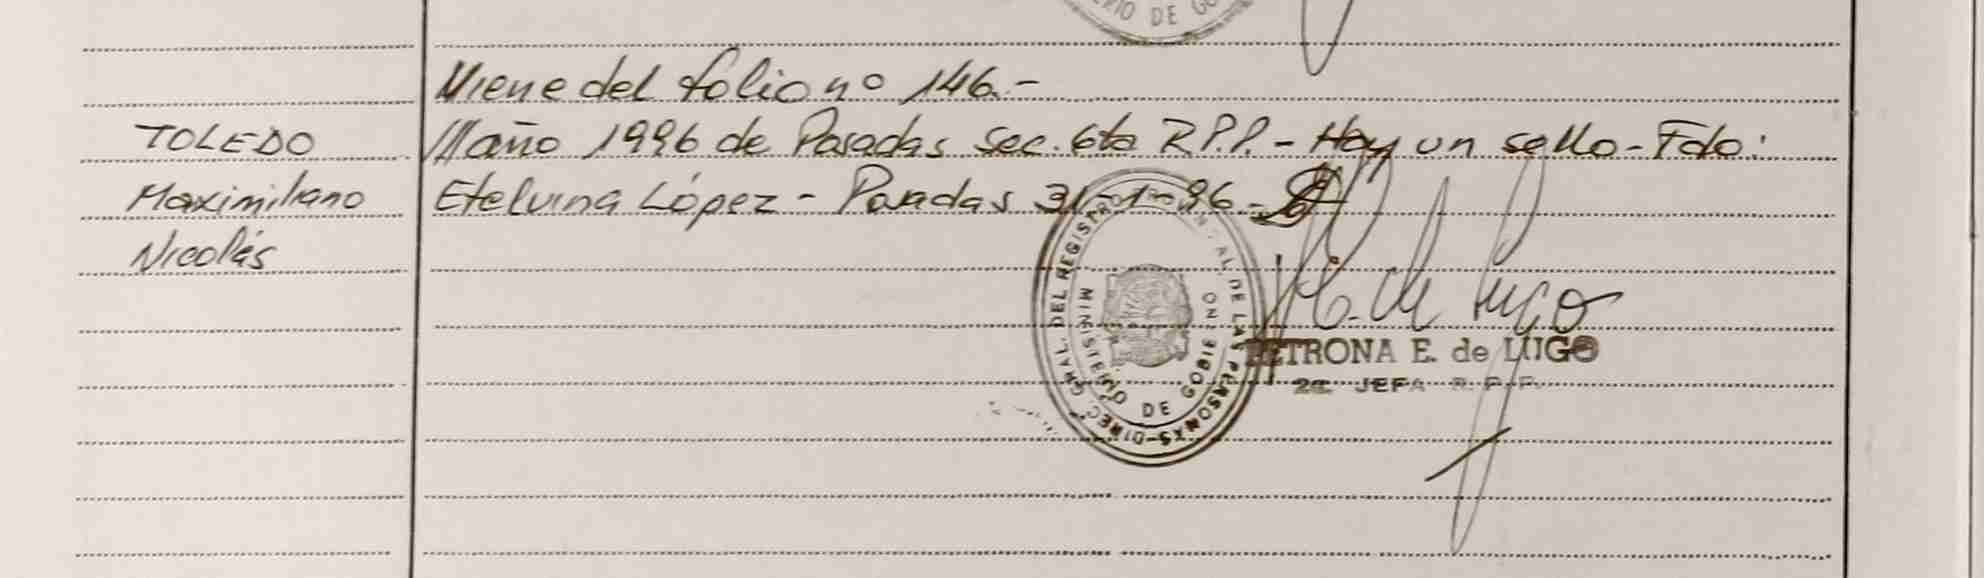 Viene del folio nº 146.-
TOLEDO
Maximiliano
Nicolás
//año 1996 de Posadas Sec. 6ta R.P.P. - Hay un sello - Fdo:
Etelvina López - Posadas 31-1-96 -
DIREC. GRAL. DEL REGISTRO PROVINCIAL DE LAS PERSONAS
MINISTERIO DE GOBIERNO
PETRONA E. de LUGO
2a. JEFA R.P.P.